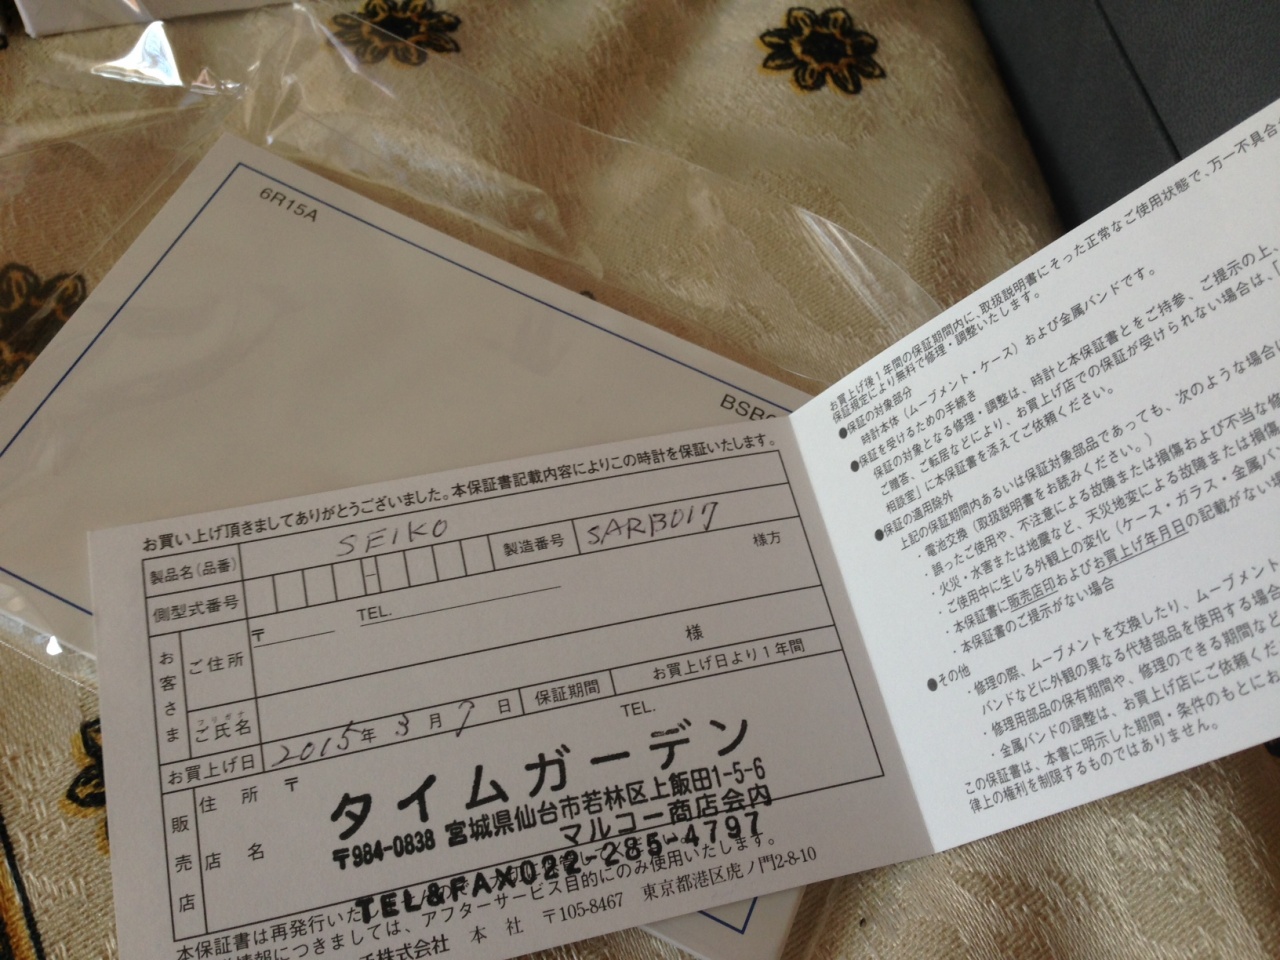 6R15A
BSB
お買い上げ頂きましてありがとうございました。本保証書記載内容によりこの時計を保証いたします。
製品名(品番) SEIKO 製造番号 SARB017
側型式番号 -
お客さま
ご住所 〒 TEL. 様方
フリガナ
ご氏名 様
お買上げ日 2015年 3月 7日 保証期間 お買上げ日より1年間
販売店
住所 〒 TEL.
店名
タイムガーデン
〒984-0838 宮城県仙台市若林区上飯田1-5-6
マルコー商店会内
TEL&FAX022-285-4797
本保証書は再発行いたし
情報につきましては、アフターサービス目的にのみ使用いたします。
株式会社 本社 〒105-8467 東京都港区虎ノ門2-8-10
お買上げ後1年間の保証期間内に、取扱説明書にそった正常なご使用状態で、万一不具合
保証規定により無料で修理・調整いたします。
●保証の対象部分
時計本体(ムーブメント・ケース)および金属バンドです。
●保証を受けるための手続き
保証の対象となる修理・調整は、時計と本保証書とをご持参、ご提示の上、
ご贈答、ご転居などにより、お買上げ店での保証が受けられない場合は、「
相談室」に本保証書を添えてご依頼ください。
●保証の適用除外
上記の保証期間内あるいは保証対象部品であっても、次のような場合
・電池交換(取扱説明書をお読みください。)
・誤ったご使用や、不注意による故障または損傷および不当な修
・火災・水害または地震など、天災地変による故障または損傷
・ご使用中に生じる外観上の変化(ケース・ガラス・金属バ
・本保証書に販売店印およびお買上げ年月日の記載がない場
・本保証書のご提示がない場合
●その他
・修理の際、ムーブメントを交換したり、ムーブメント
バンドなどに外観の異なる代替部品を使用する場合
・修理用部品の保有期間や、修理のできる期間など
・金属バンドの調整は、お買上げ店にご依頼くだ
この保証書は、本書に明示した期間・条件のもとにお
律上の権利を制限するものではありません。